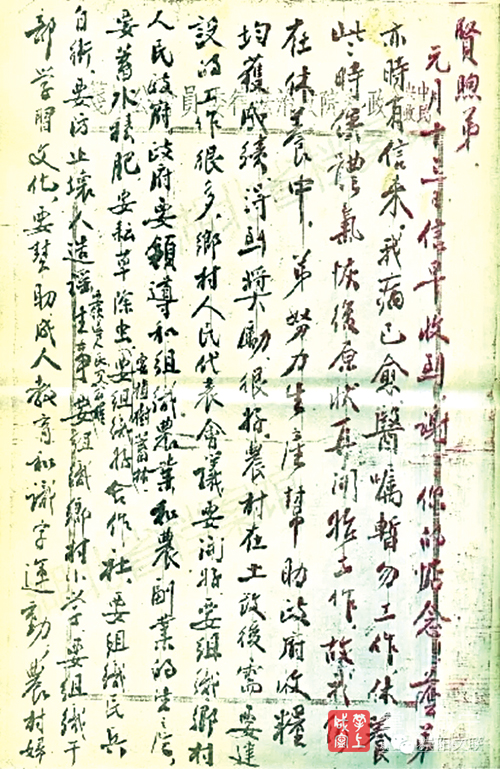 賢煦弟.
元月十三日信早收到,谢谢你的惦念,蔭弟
亦時有信来,我病已愈,醫囑暫勿工作休養
些时,俟體氣恢復原状再開始工作,故我
在休養中,弟努力生產,幫助政府收糧
均獲成绩,得到奬励,很好,農村在土政後需要建
設的工作很多,鄉村人民代表會議要開好,要组織鄉村
人民政府,政府要領導和组織農業和農副業的生產,
要蓄水積肥,要耘草除虫,要植樹蓄林,要组織好合作社,要组織民兵
自衛,要防止壞人造謡生事,要组織鄉村小学,要组織干
部学習文化,要幫助成人教育和識字運動,農村婦
学上咸寧